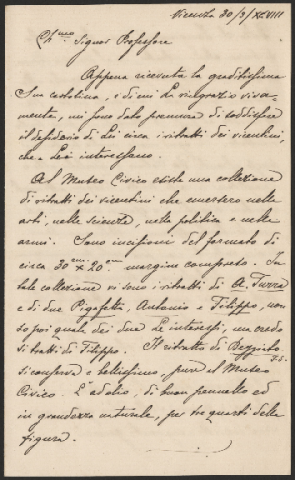 Vicenza 30/9/XCVIII
Ch.mo Signor Professore
Appena ricevuta la graditissima
Sua cartolina, e di cui La ringrazio viva-
mente, mi sono dato premura di soddisfare
il desiderio di Lei circa i ritratti dei vicentini,
che a Lei interessano.
Al Museo Civico esiste una collezione
di ritratti dei vicentini che emersero nelle
arti, nelle scienze, nella politica e nelle
armi. Sono incisioni del formato di
circa 30 cm x 20 cm margine compreso. In
tale collezione vi sono i ritratti di A. Turra
e di due Pigafetta, Antonio e Filippo, non
so poi quale dei due Le interessi, ma credo
si tratti di Filippo. Il ritratto di
si conserva e bellissimo, pure al Museo
Civico. È ad olio, di buon pennello ed
in grandezza naturale, per tre quarti della
figura.